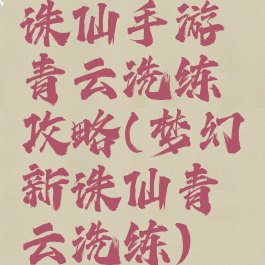 诛仙手游
青云洗练
攻略(梦幻
新诛仙青
云洗练)